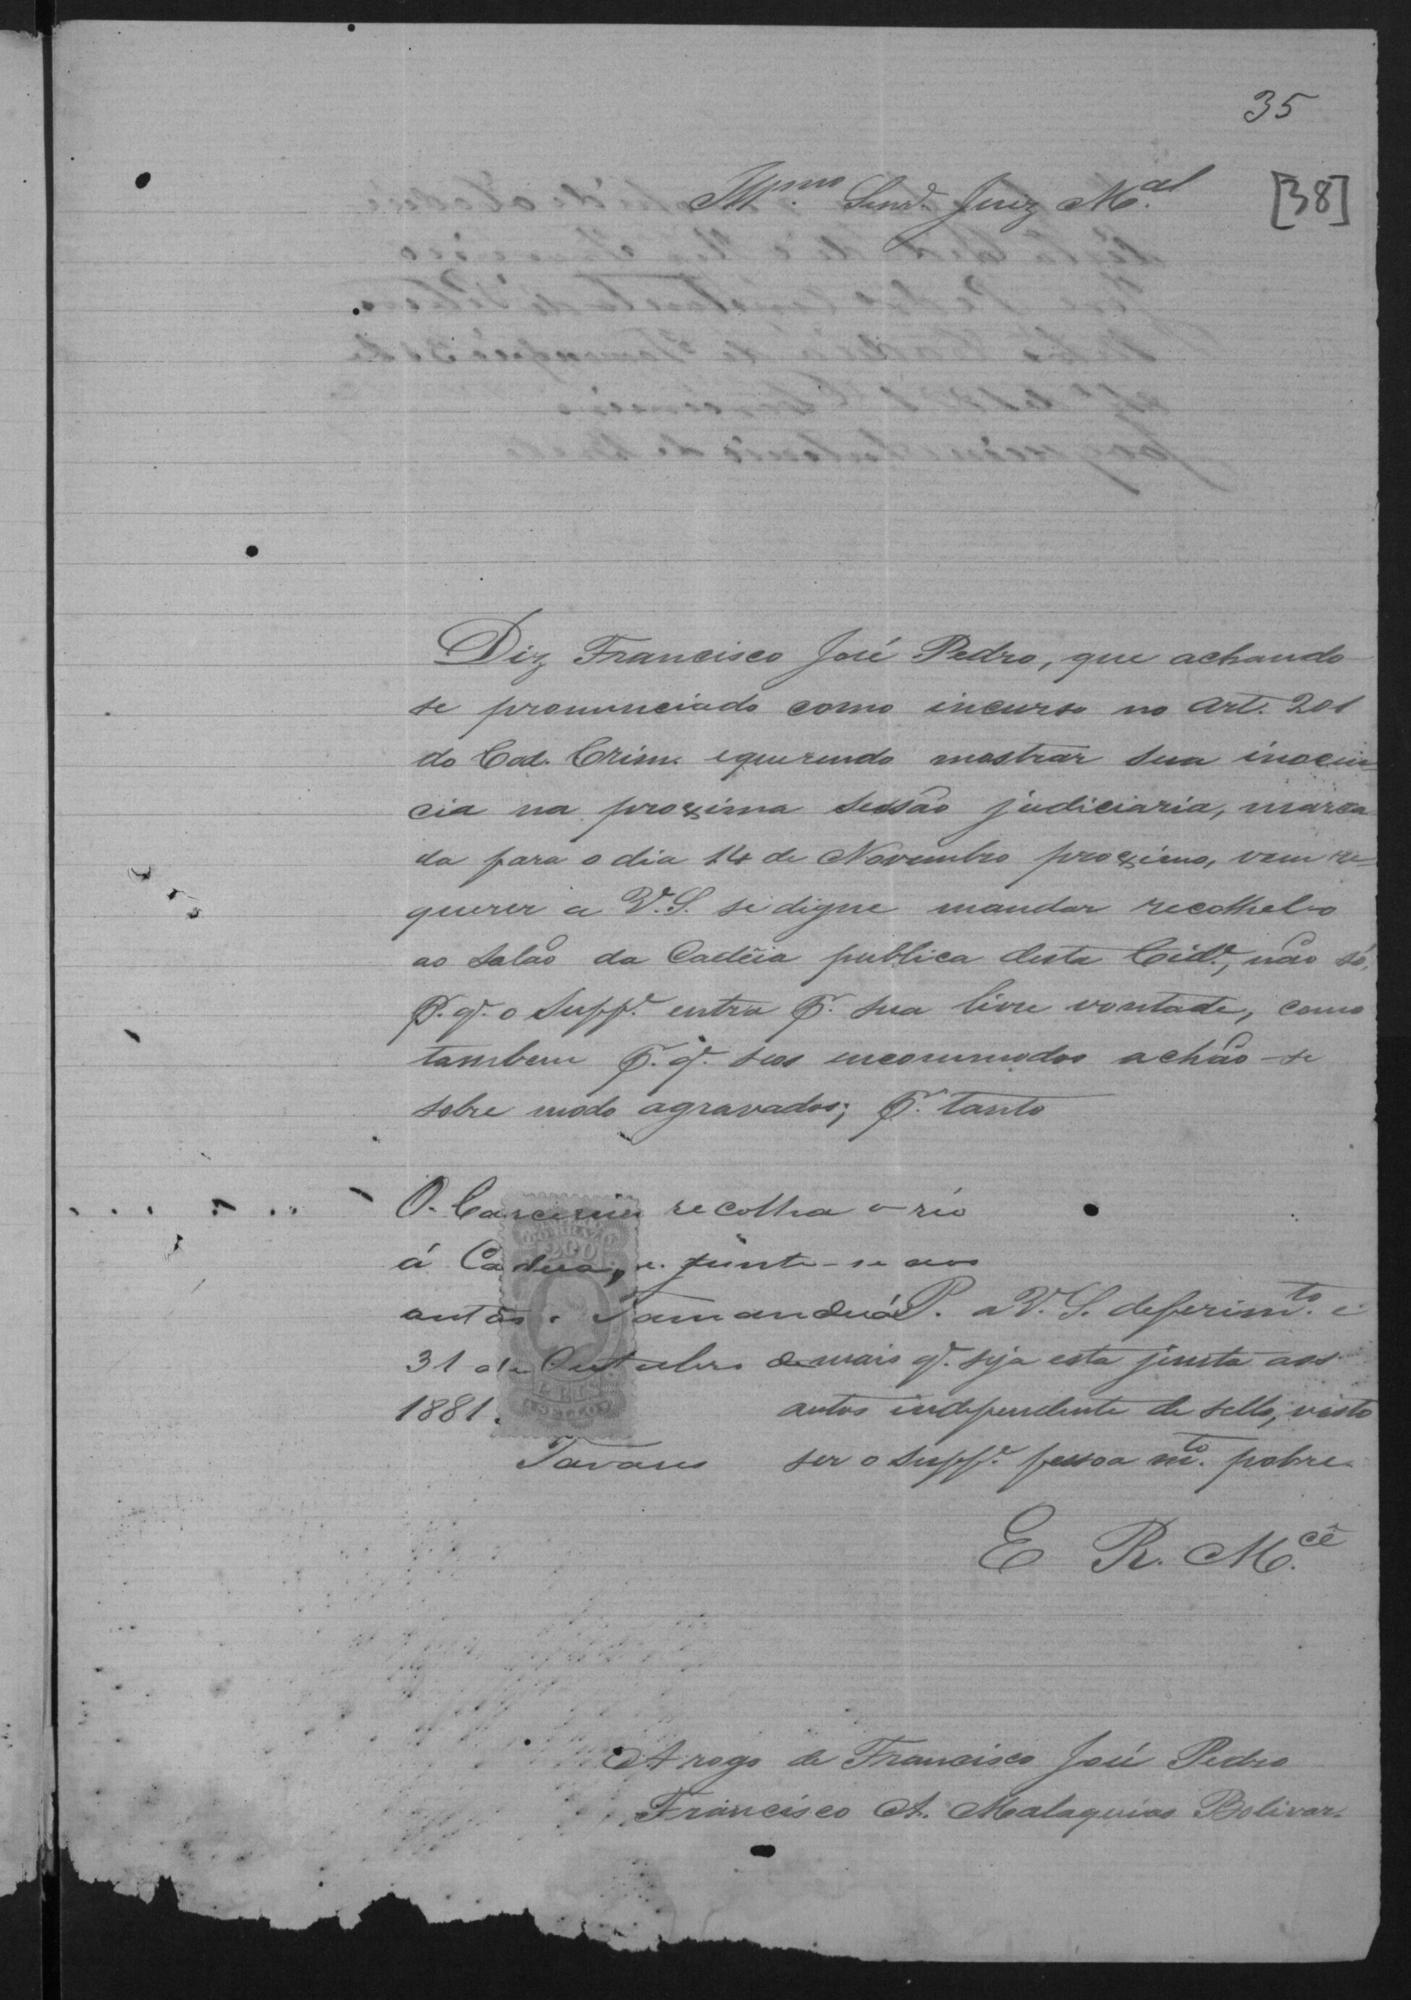 35
[38]
Illmo. Senr. Juiz Mal.
Diz Francisco José Pedro, que achando-
se pronunciado como incurso no Art. 201
do Cod. Crim. e querendo mostrar sua inocen-
cia na proxima sessão judiciaria, marca
da para o dia 14 de Novembro proximo, vem re-
querer a V. S. se digne mandar recolhel-o
ao salão da Cadêia publica desta Cide., não só,
P. q. o Suppe. entra P. sua livre vontade, como
tambem P. q. seos encommodos achão-se
sobre modo agravados; P. tanto
P. a V. S. deferimto. e
de mais q. seja esta junta aos
autos independente de sello, visto
ser o Suppe. pessoa mto. pobre.
E R. Mcê.
O Carcereiro recolha o réo
á Cadeia, e junte-se aos
autos. Tamanduá
31 de Outubro de
1881.
Tavares
A rogo de Francisco José Pedro
Francisco A. Malaquias Bolivar.